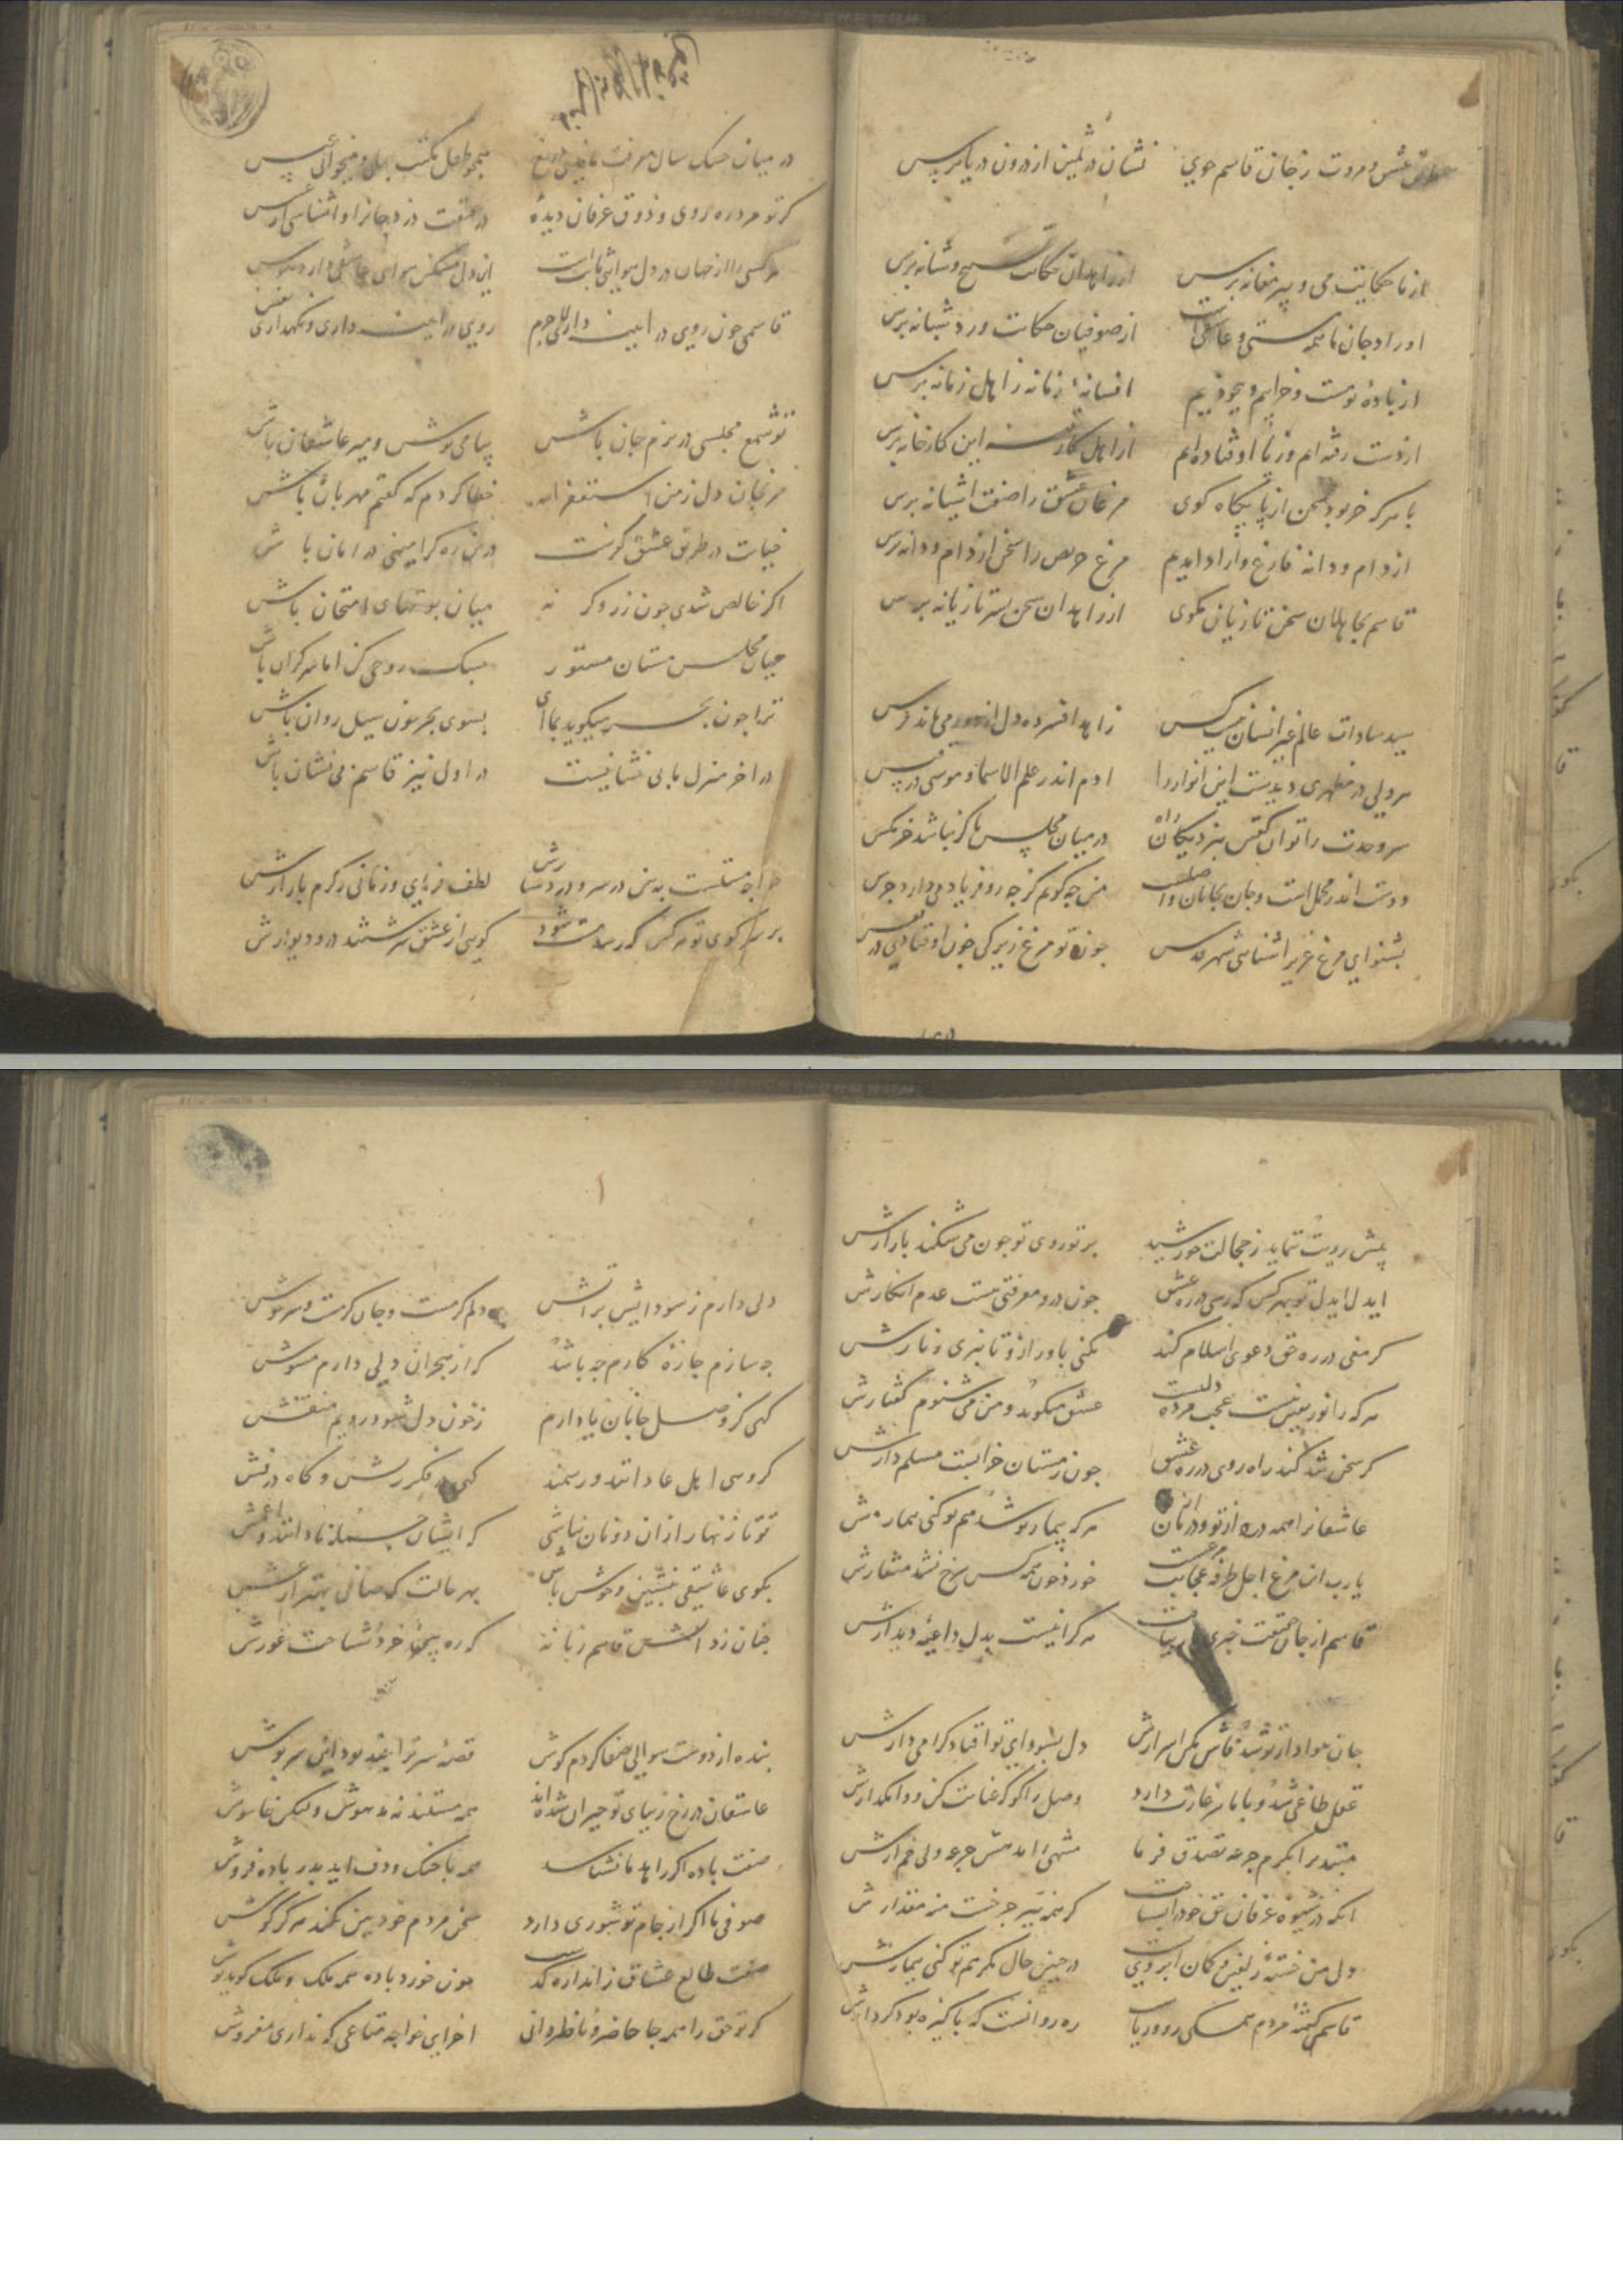 طریق عشق و مروت ز جان قاسم جوی نشان در ثمین از درون دریا پرس
از ما حکایت می و پیر مغانه پرس از زاهدان حکایت تسبیح و شانه پرس
اوراد جان ما همه مستی و عاشقیست از صوفیان حکایت ورد شبانه پرس
از باده تو مست و خرابیم و بیخودیم افسانه زمانه ز اهل زمانه پرس
از دست رفته ایم و ز پا اوفتاده ایم از اهل کار قصه این کارخانه پرس
با هرکه خر بود سخن از پایگاه گوی مرغان عشق را صفت اشیانه پرس
از دام و دانه فارغ و ازاد امدیم مرغ حریص را سخن از دام و دانه پرس
قاسم بجاهلان سخن تازیان مگوی از زاهدان سخن بستر تازیانه پرس
سید سادات عالم غیر انسان نیست کس زاهد افسرده دل از دور می ماند فرس
هر ولی در مظهری دیدست این انوار را ادم اندر علم الاسما و موسی در قبس
سر وحدت را توان گفتن بنزدیکان راه در میان مجلس ما گر نباشد خرمگس
دوست اندر محمل است و جان بجانان واصلست من چه گویم کز چه رو فریاد می دارد جرس
بشنو ای مرغ غریب اشنای شهر قدس چون تو مرغ زیرکی چون اوفتادی در قفس
در میان خشک سال معرفت
همچو طفل مکتب
کر تو مرد ره روی و ذوق عرفان دیده در حقیقت درد جانرا و اشناسی
هر کسی را از جهان در دل هوایی ثابت است این دل مسکین هوای عاشقی دارد هوس
قاسمی چون روی در ایینه دارد لاجرم روی در ایینه داری و نگهداری نفس
تو شمع مجلسی در بزم جان باش بیا می نوش و میر عاشقان باش
مرنجان دل ز من استغفر الله خطا کردم که گفتم مهربان باش
خیانت در طریق عشق کفرست درین ره گر امینی در امان باش
اگر خالص شدی چون زر و گر نه میان بوتهای امتحان باش
میان مجلس مستان مستور سبک روحی کن اما سرگران باش
ترا چون بحر میگوید بما ای بسوی بحر چون سیل روان باش
در اخر منزل ما بی نشانیست در اول نیز قاسم بی نشان باش
خواجه مستست به بین در سر و در دستارش لطف فرمای و زمانی ز کرم باز ارش
بر سر کوی تو هر کس که رسد مست شود گویی از عشق سرشتند در و دیوارش
پیش رویت ننماید ز خجالت خورشید پرتو روی تو چون می شکند بازارش
ایدل ایدل تو بهر کس که رسی در ره عشق چون درو معرفتی نیست مده انکارش
گر مغی در ره حق دعوی اسلام کند نکنی باور ازو تا نبری زنارش
هر که را نور یقین نیست عجب مرده دلیست عشق میگوید و من می شنوم گفتارش
گر سخن شد کند راه روی در ره عشق چون ز مستان خرابست مسلم دارش
عاشقانرا همه درد از تو و درمان از تو هر که بیمار تو شد هم تو کنی تیمارش
یارب این مرغ اجل طرفه عجایب مرغیست خورد خون همه کس سرخ نشد منقارش
قاسم از جان حقیقت خبری باز نیافت هر که را نیست بدل داعیه دیدارش
جان هوادار تو شد فاش مکن اسرارش دل بسودای تو افتاد گرامی دارش
عقل طاغی شد و با ما سر غارت دارد وصل را گو که عنایت کن و وامگذارش
مبتدیرا بکرم جرعه تصدق فرما منتهی را مده بیش جرعه ولی خم ارش
انکه در شیوه عرفان حق خود را نشناخت گر همه نیر چرخست منه مقدارش
دل من خسته زلفین و کمان ابرویت در چنین حال مگر هم تو کنی تیمارش
قاسمی کشته مردم همگی رو دریاب ره روانست که پاکیزه بود کردارش
دلی دارم ز سودایش بر اتش دلم گرمست و جان گرمست و سر خوش
چه سازم چاره کارم چه باشد که از هجران دلی دارم مشوش
گهی کز وصل جانان یاد ارم ز خون دل شود رویم منقش
گروهی اهل عاداتند و رسمند گهی در فکر ریش و گاه در فش
تو تا زنهار ازان دونان نباشی که ایشان جمله نادانند و اعمش
بکوی عاشقی بنشین و خوش باش بهر حالت که صافی بهتر از غش
چنان زد اتش قاسم زبانه که ره پیمای خرد نشناخت غورش
بنده از دوست سوالی بصفا کردم گوش قصه سر ترا چند بود این سرپوش
عاشقان در رخ زیبای تو حیران شده اند همه مستند نه مدهوش ولیکن خاموش
صفت باده اگر زاهد ما نشناسد همه با چنگ و دف اید بدر باده فروش
صوفی ما اگر از جام تو شوری دارد سخن مردم خود بین نکند هرگز گوش
صفت طالع عشاق ز اندازه گذشت چون خورد باده همه ملک و ملک گوید نوش
گر تو حق را همه جا حاضر و ناظر دانی اخر ای خواجه متاعی که نداری مفروش